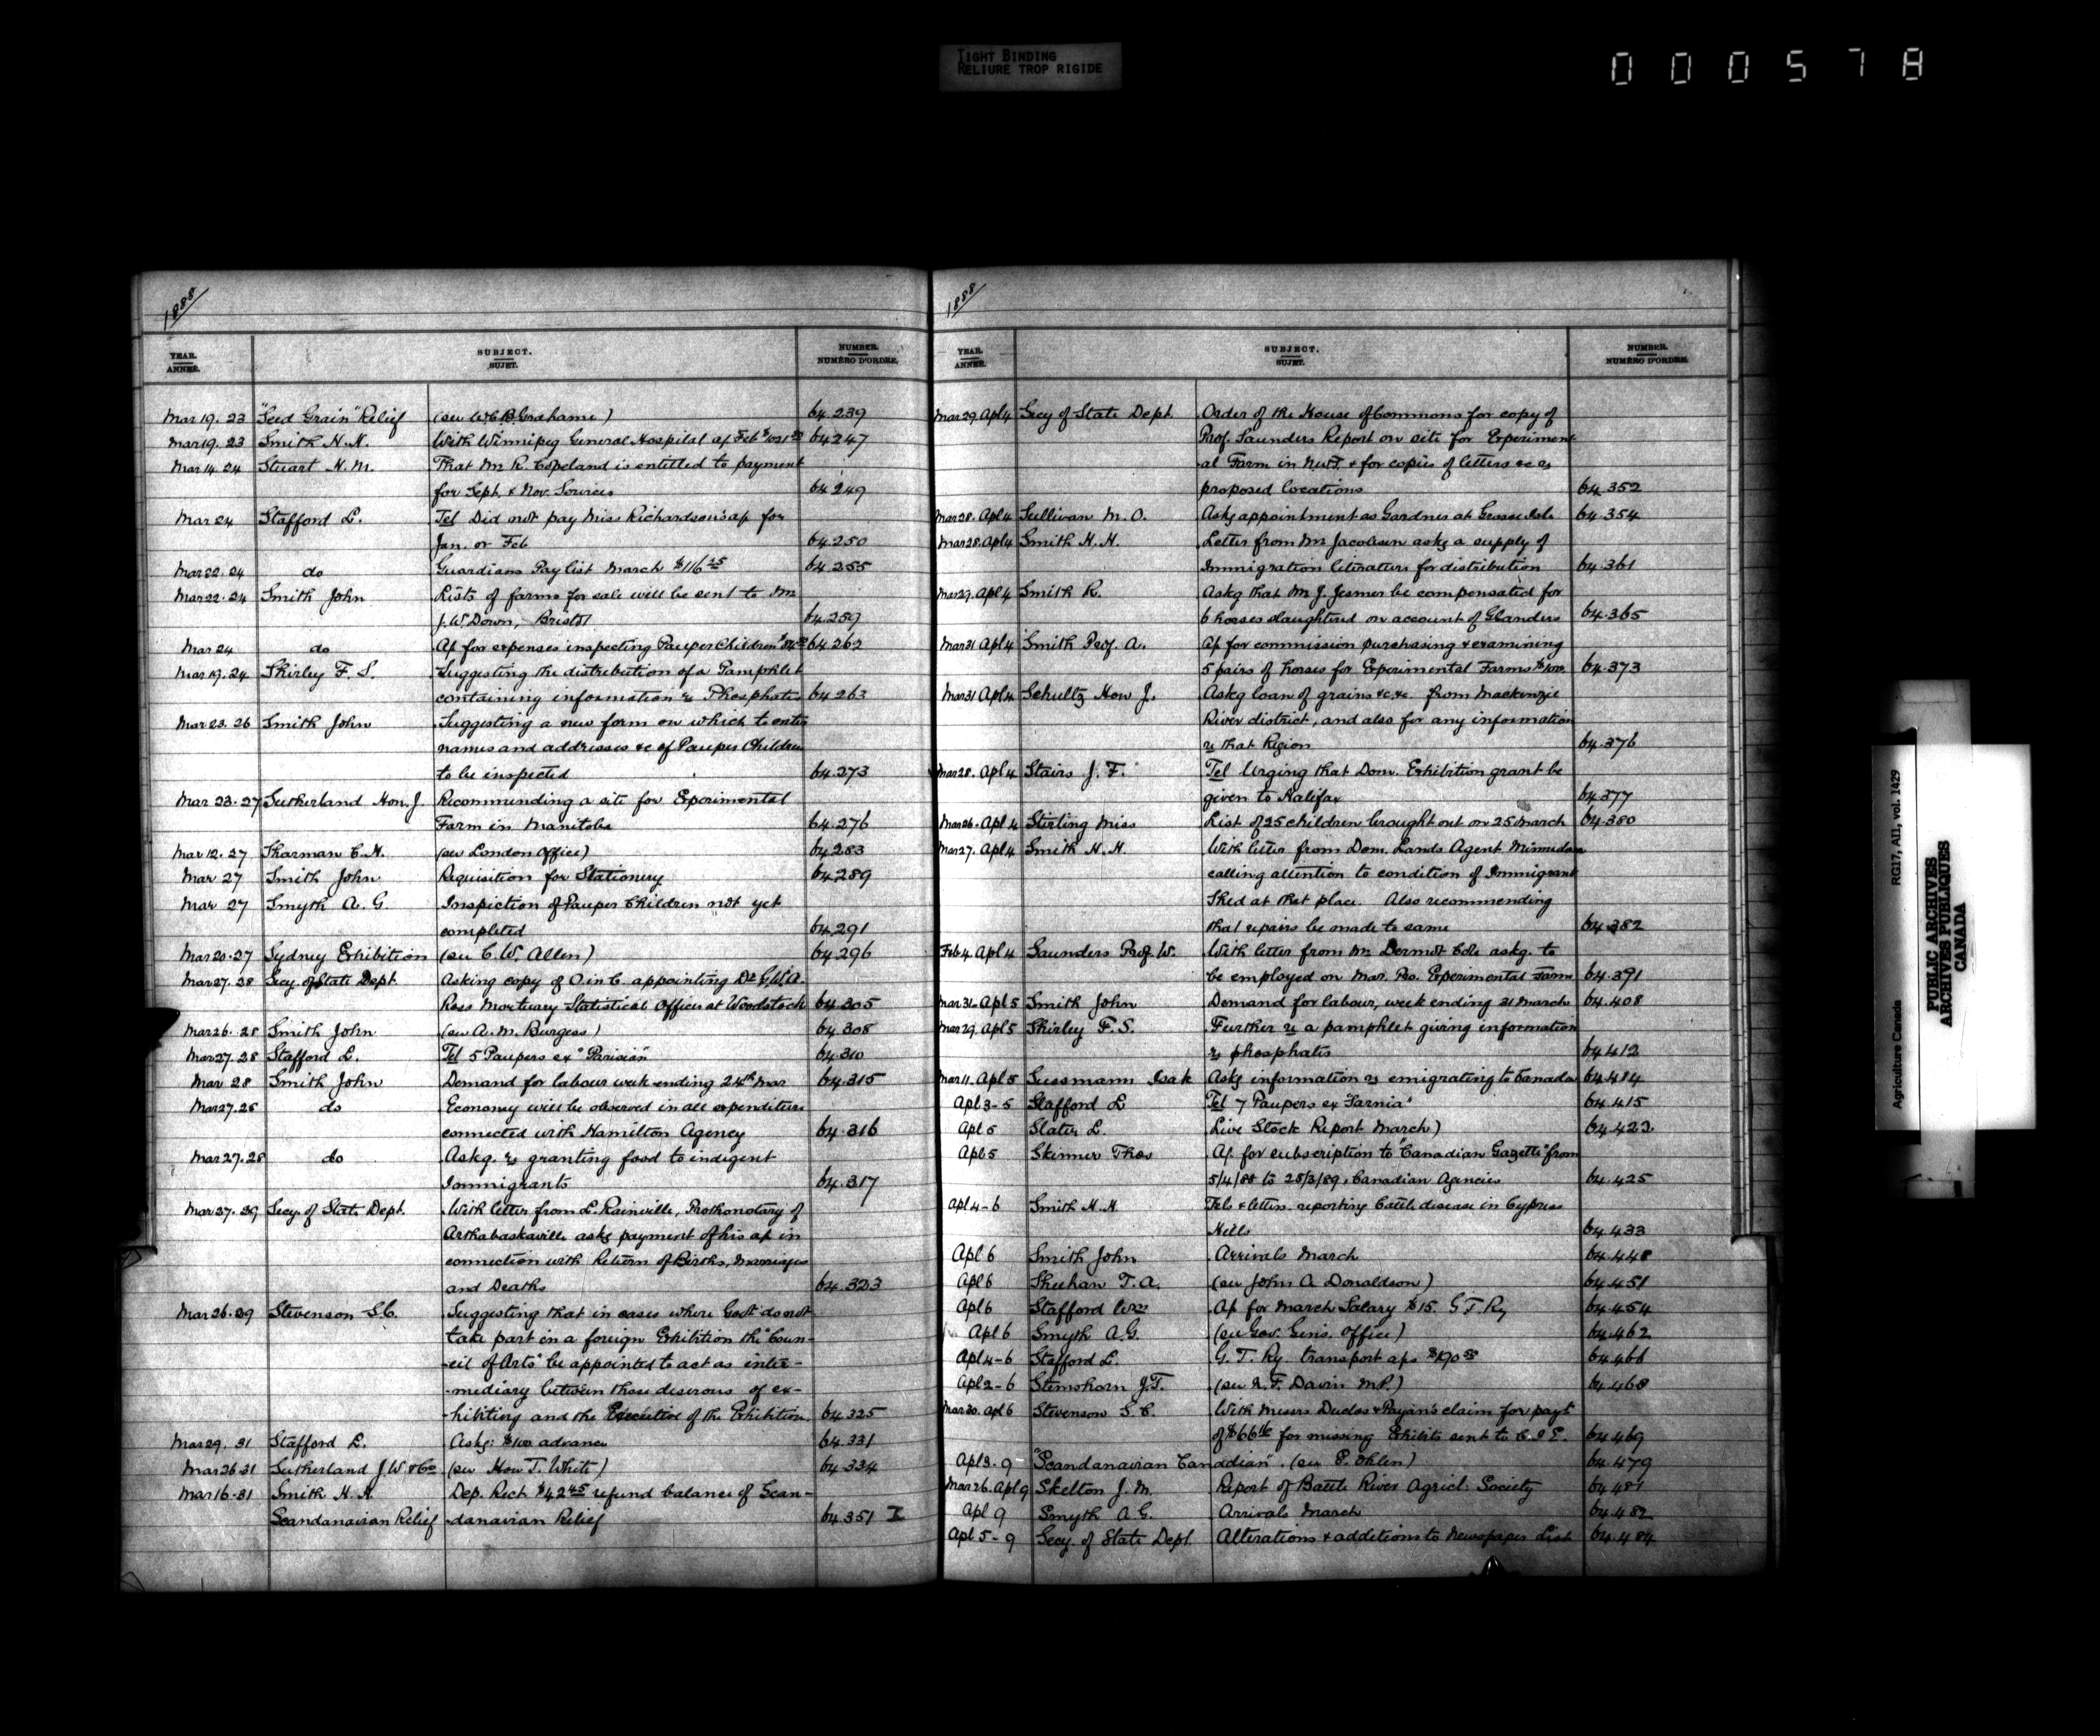 TIGHT BINDING
RELIURE TROP RIGIDE
000578
1888
YEAR. ANNÉE. SUBJECT. SUJET. NUMBER. NUMÉRO D'ORDRE.
Mar 19. 23 "Seed Grain" Relief (see W.C.B. Grahame) 64.239
Mar 19. 23 Smith H.H. With Winnipeg General Hospital a/c Feb 64247
Mar 14. 24 Stuart H. M. That Mr R. Copeland is entitled to payment
for Sept. & Nov. Services 64249
Mar 24 Stafford L. Tel Did not pay Miss Richardson's a/c for
Jan. or Feb 64.250
Mar 22. 24 do Guardians Pay list March $116 25 64.255
Mar 22. 24 Smith John Lists of farms for sale will be sent to Mr
J. W. Down, Bristol 64.259
Mar 24 do A/c for expenses inspecting Pauper Children 64262
Mar 19. 24 Shirley F. S. Suggesting the distribution of a Pamphlet
containing information re Phosphates 64.263
Mar 23. 26 Smith John Suggesting a new form on which to enter
names and addresses &c of Pauper Children
to be inspected 64.273
Mar 23. 27 Sutherland Hon. J. Recommending a site for Experimental
Farm in Manitoba 64.276
Mar 12. 27 Sharman C. H. (see London Office) 64283
Mar 27 Smith John Requisition for Stationery 64289
Mar 27 Smyth A. G. Inspection of Pauper Children not yet
completed 64.291
Mar 20. 27 Sydney Exhibition (see C. W. Allen) 64.296
Mar 27. 28 Secy. of State Dept Asking copy of O in C. appointing Dr G.W.A.
Ross Mortuary Statistical Officer at Woodstock 64.305
Mar 26. 28 Smith John (see A. M. Burgess) 64.308
Mar 27. 28 Stafford L. Tel 5 Paupers ex "Parisian" 64.310
Mar 28 Smith John Demand for labour week ending 24th Mar 64.315
Mar 27. 28 do Economy will be observed in all expenditure
connected with Hamilton Agency 64.316
Mar 27. 28 do Askg. re granting food to indigent
Immigrants 64.317
Mar 27. 29 Secy. of State Dept. With letter from L. Rainville, Prothonotary of
Arthabaskaville askg payment of his a/c in
connection with Return of Births, Marriages
and Deaths 64.323
Mar 26. 29 Stevenson S.C. Suggesting that in cases where Govt do not
take part in a foreign Exhibition the "Coun-
-cil of Arts" be appointed to act as inter-
-mediary between those desirous of ex-
-hibiting and the Executive of the Exhibition 64.325
Mar 29. 31 Stafford L. Askg: $100 advance 64.331
Mar 26 31 Sutherland J. W. & Co (see Hon T. White) 64.334
Mar 16. 31 Smith H. H. Dep. Rect $42 45 refund balance of Scan-
Scandanavian Relief -danavian Relief 64.351 I
1888
YEAR. ANNÉE. SUBJECT. SUJET. NUMBER. NUMÉRO D'ORDRE.
Mar 29. Apl 4 Secy of State Dept. Order of the House of Commons for copy of
Prof. Saunders Report on site for Experiment-
-al Farm in N.W.T. & for copies of letters &c re
proposed locations 64.352
Mar 28. Apl 4 Sullivan M. O. Askg appointment as Gardner at Grosse Isle 64.354
Mar 28. Apl 4 Smith H. H. Letter from Mr Jacobsen askg a supply of
Immigration literature for distribution 64.361
Mar 29. Apl 4 Smith R. Askg that Mr J. Jesmer be compensated for
6 horses slaughtered on account of Glanders 64.365
Mar 31 Apl 4 Smith Prof. A. A/c for commission purchasing & examining
5 pairs of horses for Experimental Farms $100. 64.373
Mar 31 Apl 4 Schultz Hon J. Askg loan of grains &c &c. from Mackenzie
River district, and also for any information
re that Region 64.376
Mar 28. Apl 4 Stairs J. F. Tel Urging that Dom. Exhibition grant be
given to Halifax 64377
Mar 26. Apl 4 Stirling Miss List of 25 children brought out on 25 March 64.380
Mar 27. Apl 4 Smith H. H. With letter from Dom. Lands Agent Minnedosa
calling attention to condition of Immigrant
Shed at that place. Also recommending
that repairs be made to same 64.382
Feb 4. Apl 4 Saunders Prof W. With letter from Mr Dermot Cole askg. to
be employed on Mar. Pro. Experimental Farm 64.391
Mar 31. Apl 5 Smith John Demand for labour, week ending 31 March 64.408
Mar 29. Apl 5 Shirley F. S. Further re a pamphlet giving information
re phosphates 64.412
Mar 11. Apl 5 Sussmann Isak Askg information re emigrating to Canada 64.414
Apl 3-5 Stafford L Tel 7 Paupers ex "Sarnia" 64.415
Apl 5 Slater L. Live Stock Report March) 64.423
Apl 5 Skinner Thos A/c for subscription to "Canadian Gazette" from
5/4/88 to 28/3/89, Canadian Agencies 64.425
Apl 4-6 Smith H. H Tels & letters reporting Cattle disease in Cypress
Hills 64.433
Apl 6 Smith John Arrivals March 64.448
Apl 6 Sheehan T. A. (see John A Donaldson) 64.451
Apl 6 Stafford Wm A/c for March Salary $15. G T. Ry 64.454
Apl 6 Smyth A. G. (see Gov. Gen's. Office) 64.462
Apl 4-6 Stafford L. G. T. Ry transport a/cs 64.466
Apl 2-6 Stemshorn J. T. (see N. F. Davin M.P.) 64.468
Mar 20. Apl 6 Stevenson S. C. With Messrs Duclos & Payan's claim for payt
of $66 16 for missing Exhibits sent to C. I. E. 64.469
Apl 3. 9 "Scandanavian Canadian". (see E. Ohlen) 64.479
Mar 26. Apl 9 Skelton J. M. Report of Battle River Agricl: Society 64.481
Apl 9 Smyth A. G. Arrivals March 64.482
Apl 5-9 Secy. of State Dept. Alterations & additions to Newspaper List 64.484
Agriculture Canada RG17, AII, vol. 1429
PUBLIC ARCHIVES
ARCHIVES PUBLIQUES
CANADA